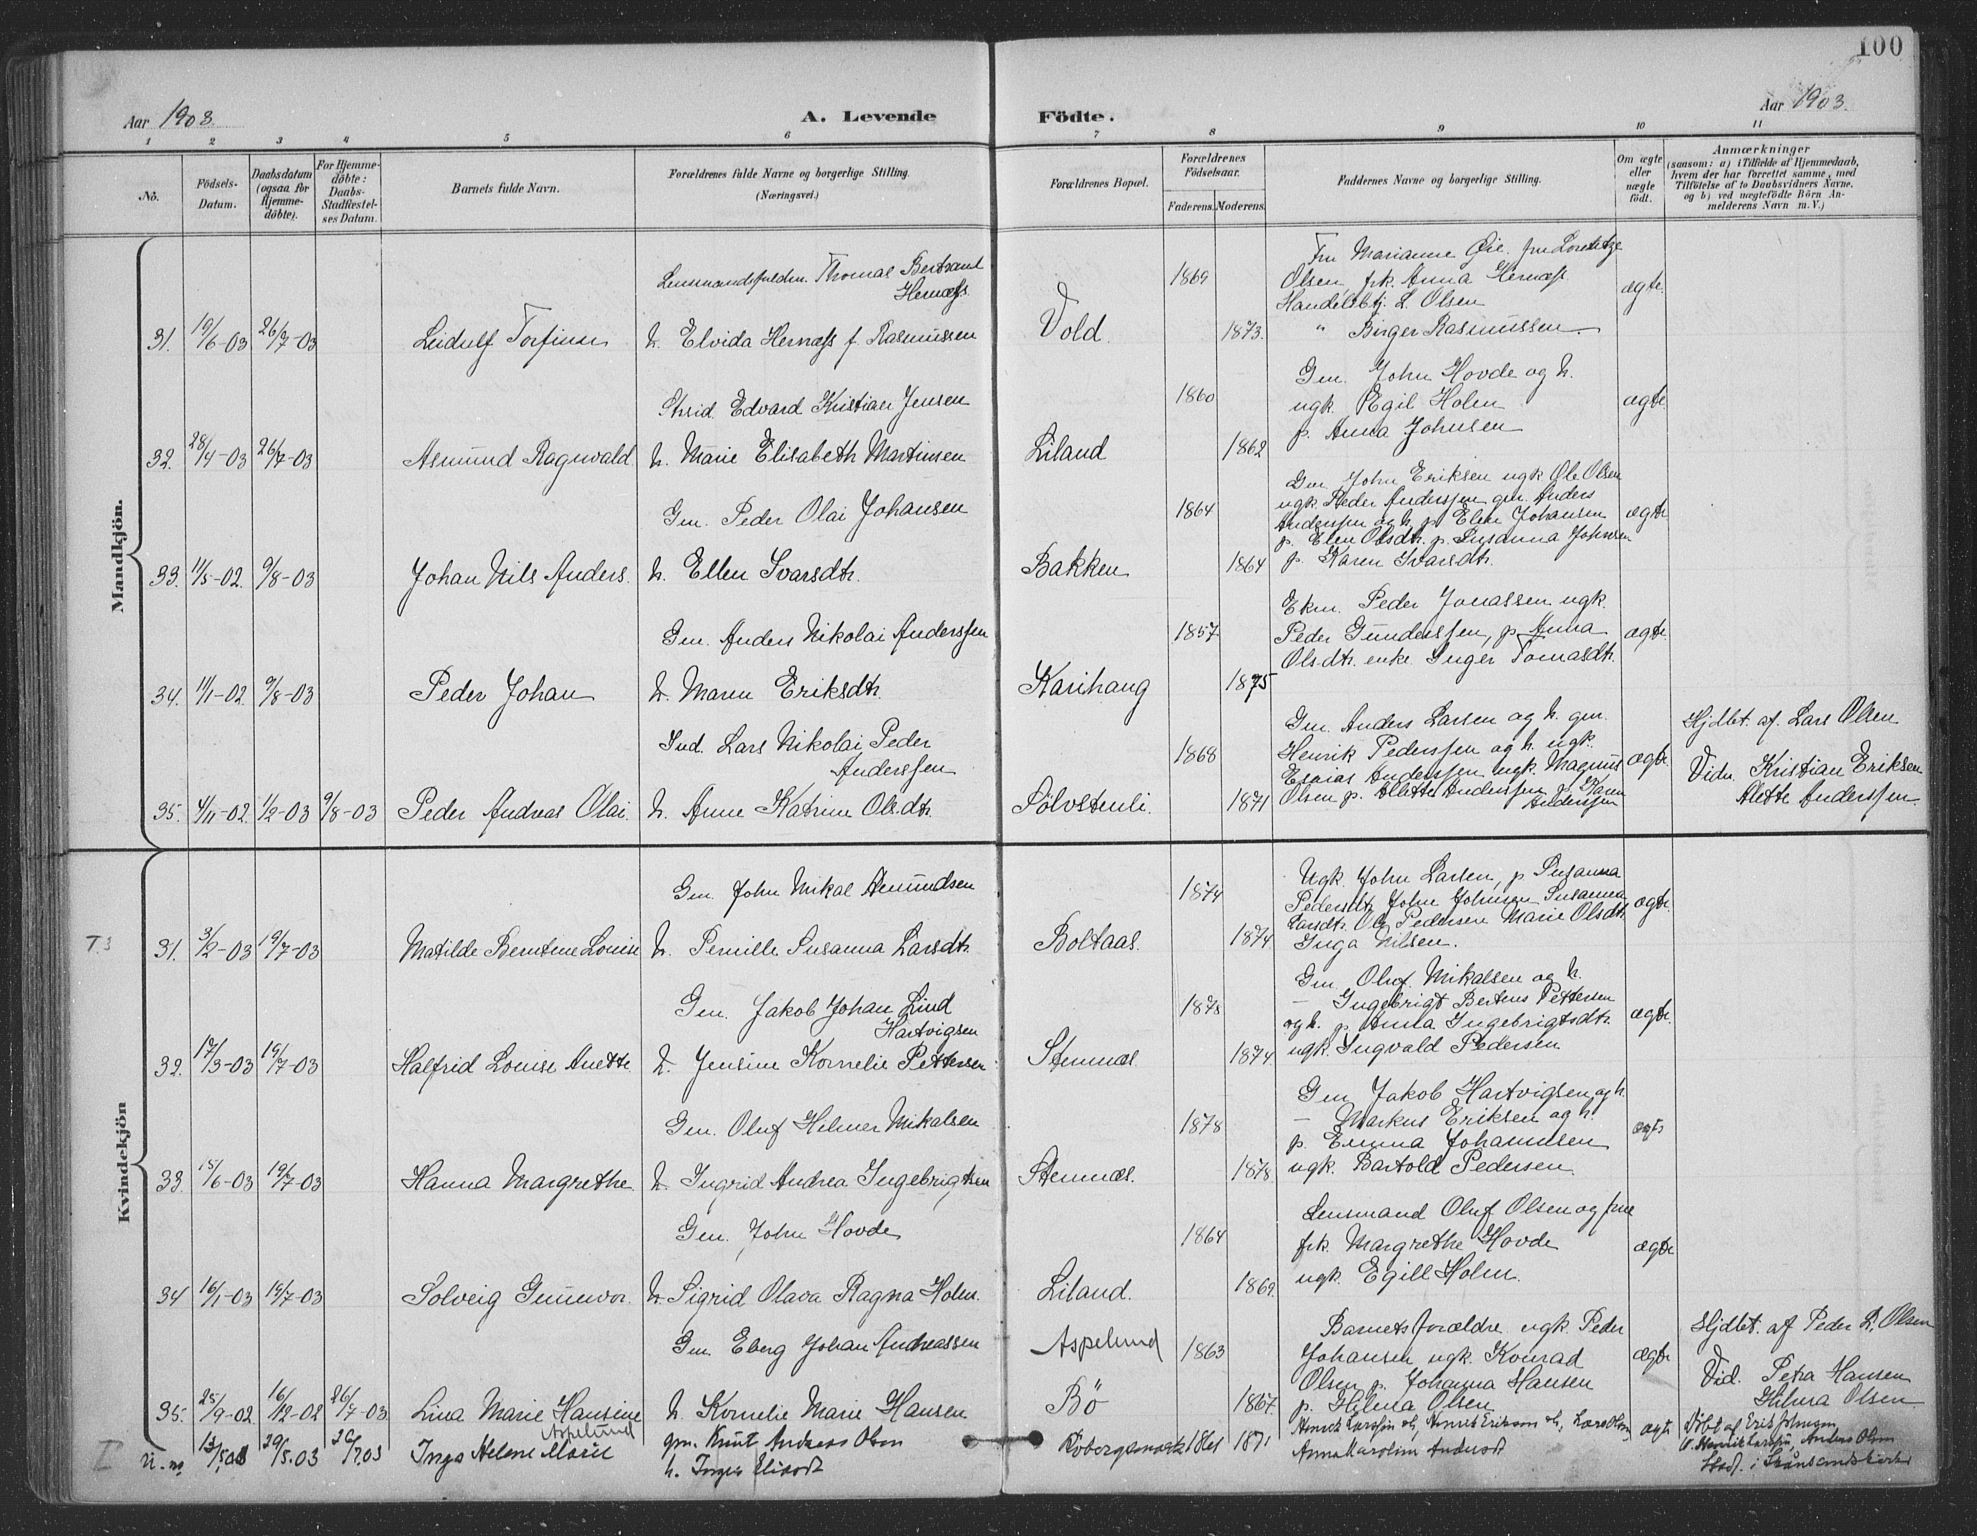 100
Aar 1903.
A. Levende
Födte.
Aar 1903.
1 2 3 4 5 6 7 8 9 10 11
No.
Födsels-
Datum.
Daabsdatum
(ogsaa for
Hjemme-
döbte).
For Hjemme-
döbte:
Daabs-
Stadfæstel-
ses Datum.
Barnets fulde Navn.
Forældrenes fulde Navne og borgerlige Stilling.
(Næringsvei.)
Forældrenes Bopæl.
Forældrenes
Födselsaar.
Faderens. Moderens.
Faddernes Navne og borgerlige Stilling.
Om ægte
eller
uægte
födt.
Anmærkninger
(saasom: a) i Tilfælde af Hjemmedaab,
hvem der har forrettet samme, med
Tilföielse af to Daabsvidners Navne,
og b) ved uægtefödte Börn An-
melderens Navn m. V.)
Mandkjön.
Lensmandsfuldm. Thomas Bertrand
Hernæss
1869
Fru Marianne Øie, fru Lorentze
Olsen, frk. Anna Hernæss
Handelsbtj. L. Olsen
" Birger Rasmussen
ægte.
31. 19/6-03 26/7-03 Leidulf Torfinn h. Elvida Hernæss f. Rasmussen Vold. 1873.
Edvard Kristian Jensen
1860
Gm. John Hovde og h.
ugk. Egil Holm
p. Anna Johnsen
ægte
32. 28/4-03 26/7-03 Asmund Ragnvald h. Marie Elisabeth Martinsen Liland 1862
Gm. Peder Olai Johansen
1864
Gm John Eriksen ugk. Ole Olsen
ugk. Peder Anderssen gm. Anders
Anderssen og h. p. Elen Johansen
p. Elen Olsdtr. p. Susanna Johnsen
p. Karen Ivarsdtr.
ægte
33. 11/5-02 9/8-03 Johan Nils Anders. h. Ellen Ivarsdtr. Bakken 1864
Gm. Anders Nikolai Anderssen
1857
Ekm. Peder Jonassen ugk.
Peder Gunderssen, p. Anna
Olsdtr. enke Inger Tomasdtr.
ægte
34. 11/1-02 9/8-03 Peder Johan h. Maren Eriksdtr. Karihaug 1875
Ind. Lars Nikolai Peder
Anderssen
1868
Gm. Anders Larsen og h. gm.
Henrik Pederssen og h. ugk.
Esaias Anderssen ugk. Magnus
Olsen p. Alette Anderssen p. Karen
Anderssen
ægte
Hjdbt. af Lars Olsen
Vidn. Kristian Eriksen
Alette Anderssen
35. 4/11-02 1/2-03 9/8-03 Peder Andreas Olai. h. Anne Katrine Olsdtr. Sölvstenli. 1871
Kvindekjön
Gm. John Mikal Amundsen
1874
Ugk. John Larsen, p Susanna
Pedersdtr. John Johnsen Susanna
Larsdtr. Ole Pedersen Marie Olsdtr.
Inga Nilsen.
ægte.
31. 3/2-03 19/7-03 Matilde Berntine Louise h. Pernille Susanna Larsdtr. Boltaas. 1874
Gm. Jakob Johan Lind
Hartvigsen
1873
Gm. Oluf Mikalsen og h.
— Ingebrigt Bertens Pettersen
og h. p. Anna Ingebrigtsdtr.
ugk. Ingvald Pedersen
ægte.
32. 17/3-03 19/7-03 Halfrid Louise Anette h. Jensine Kornelie Pettersen Stennæs. 1874
Gm. Oluf Helmer Mikalsen
1878
Gm Jakob Hartvigsen og h.
— Markus Eriksen og h.
p. Emma Johannesen
ugk. Bartold Pedersen
ægte
33. 15/6-03 19/7-03 Hanna Margrethe h. Ingrid Andrea Ingebrigtsen Stennæs. 1878.
Gm. John Hovde
1864
Lensmand Oluf Olsen og frue
frk. Margrethe Hovde
ugk. Egill Holm.
ægte
34 16/1-03 19/7-03 Solveig Gunnvor. h. Sigrid Olava Ragna Holm. Liland. 1869.
Gm. Eberg Johan Andreassen
Aspelund 1863
Barnets forældre ugk. Peder
Johansen ugk. Konrad
Olsen p. Johanna Hansen
p. Hilma Olsen
ægte
Hjdbt. af Peder L. Olsen
Vid. Petra Hansen
Hilma Olsen
35. 25/9-02 16/12-02 26/7-03 Lina Marie Hansine h. Kornelie Marie Hansen Bö 1867.
Aspelund
gm. Knut Andreas Olsen
h. Inger Elisadt.
29/5.03 Inga Helene Marie
Anna Karoline Andersdt
ægte
Döbt af Erik Johnsen